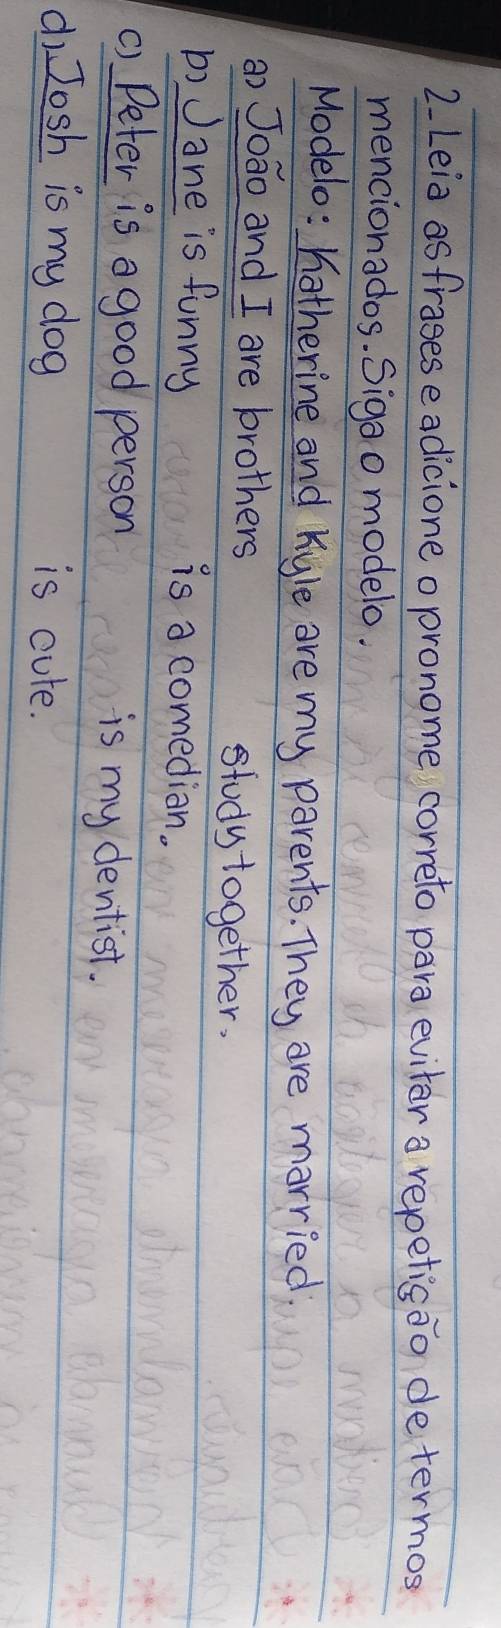 2-Leia as frases e adicione o pronome correto para evitar a repetição de termos
mencionados. Siga o modelo.
Modelo: Katherine and Kyle are my parents. They are married.
a) João and I are brothers study together.
b) Jane is funny is a comedian.
c) Peter is a good person is my dentist.
d) Josh is my dog is cute.